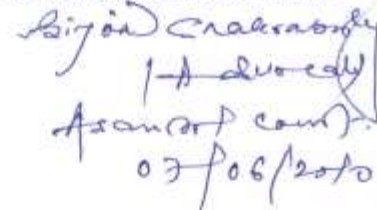 Bijon Chakraborty
Advocate
Asansol Court.
07/06/2010